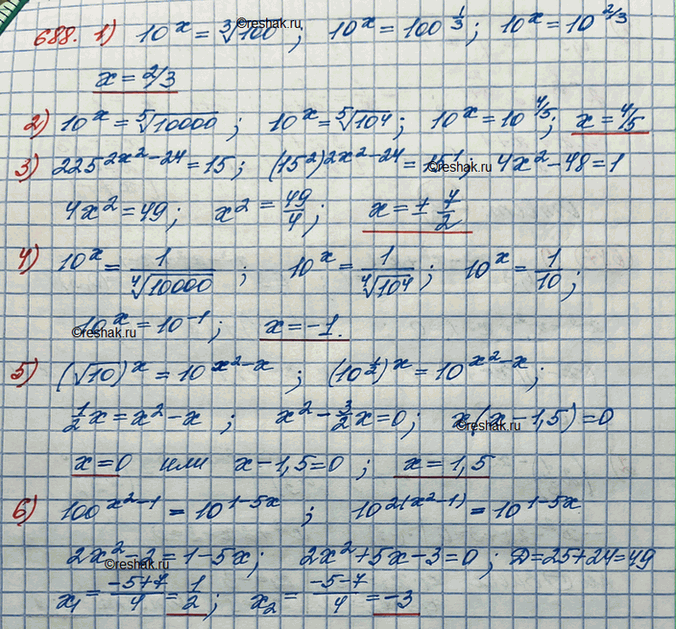 ©reshak.ru
688. 1) 10^x = ∛100 ; 10^x = 100^(1/3) ; 10^x = 10^(2/3)
x = 2/3
2) 10^x = ⁵√10000 ; 10^x = ⁵√10⁴ ; 10^x = 10^(4/5) ; x = 4/5
3) 225^(2x²-24) = 15 ; (15²)^(2x²-24) = 15¹ ; 4x² - 48 = 1
©reshak.ru
4x² = 49 ; x² = 49/4 ; x = ± 7/2
4) 10^x = 1/⁴√10000 ; 10^x = 1/⁴√10⁴ ; 10^x = 1/10 ;
10^x = 10^(-1) ; x = -1.
©reshak.ru
5) (√10)^x = 10^(x²-x) ; (10^(1/2))^x = 10^(x²-x) ;
1/2 x = x² - x ; x² - 3/2 x = 0 ; x(x - 1,5) = 0
©reshak.ru
x = 0 или x - 1,5 = 0 ; x = 1,5
6) 100^(x²-1) = 10^(1-5x) ; 10^(2(x²-1)) = 10^(1-5x)
2x² - 2 = 1 - 5x ; 2x² + 5x - 3 = 0 ; D = 25 + 24 = 49
©reshak.ru
x₁ = (-5+7)/4 = 1/2 ; x₂ = (-5-7)/4 = -3